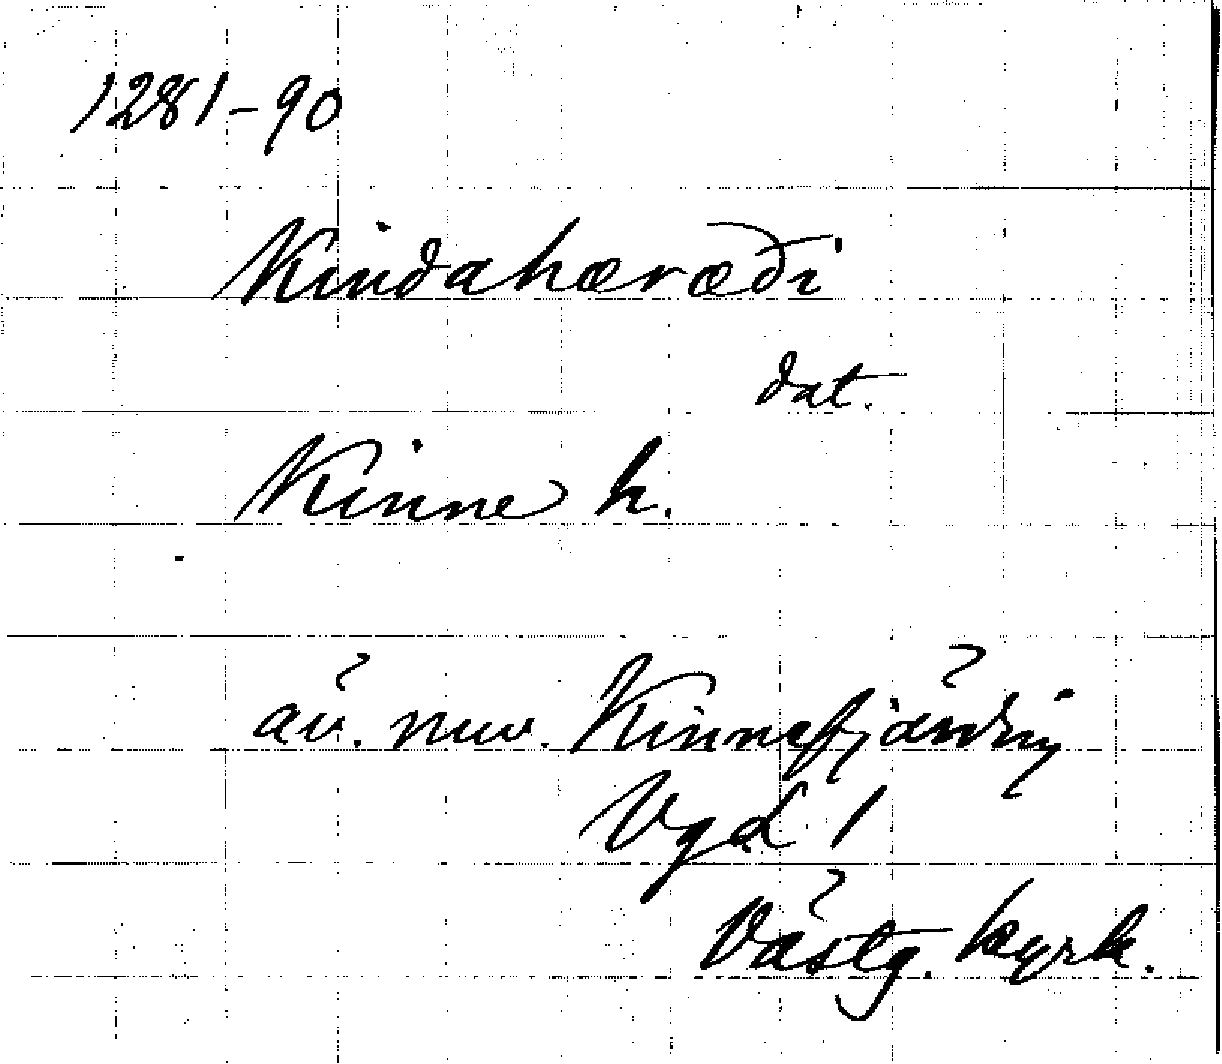 1281-90
Kindahæræði
dat.
Kinne h.
äv. nuv. Kinnefjärding
VgL 1
Västg. kyrk.